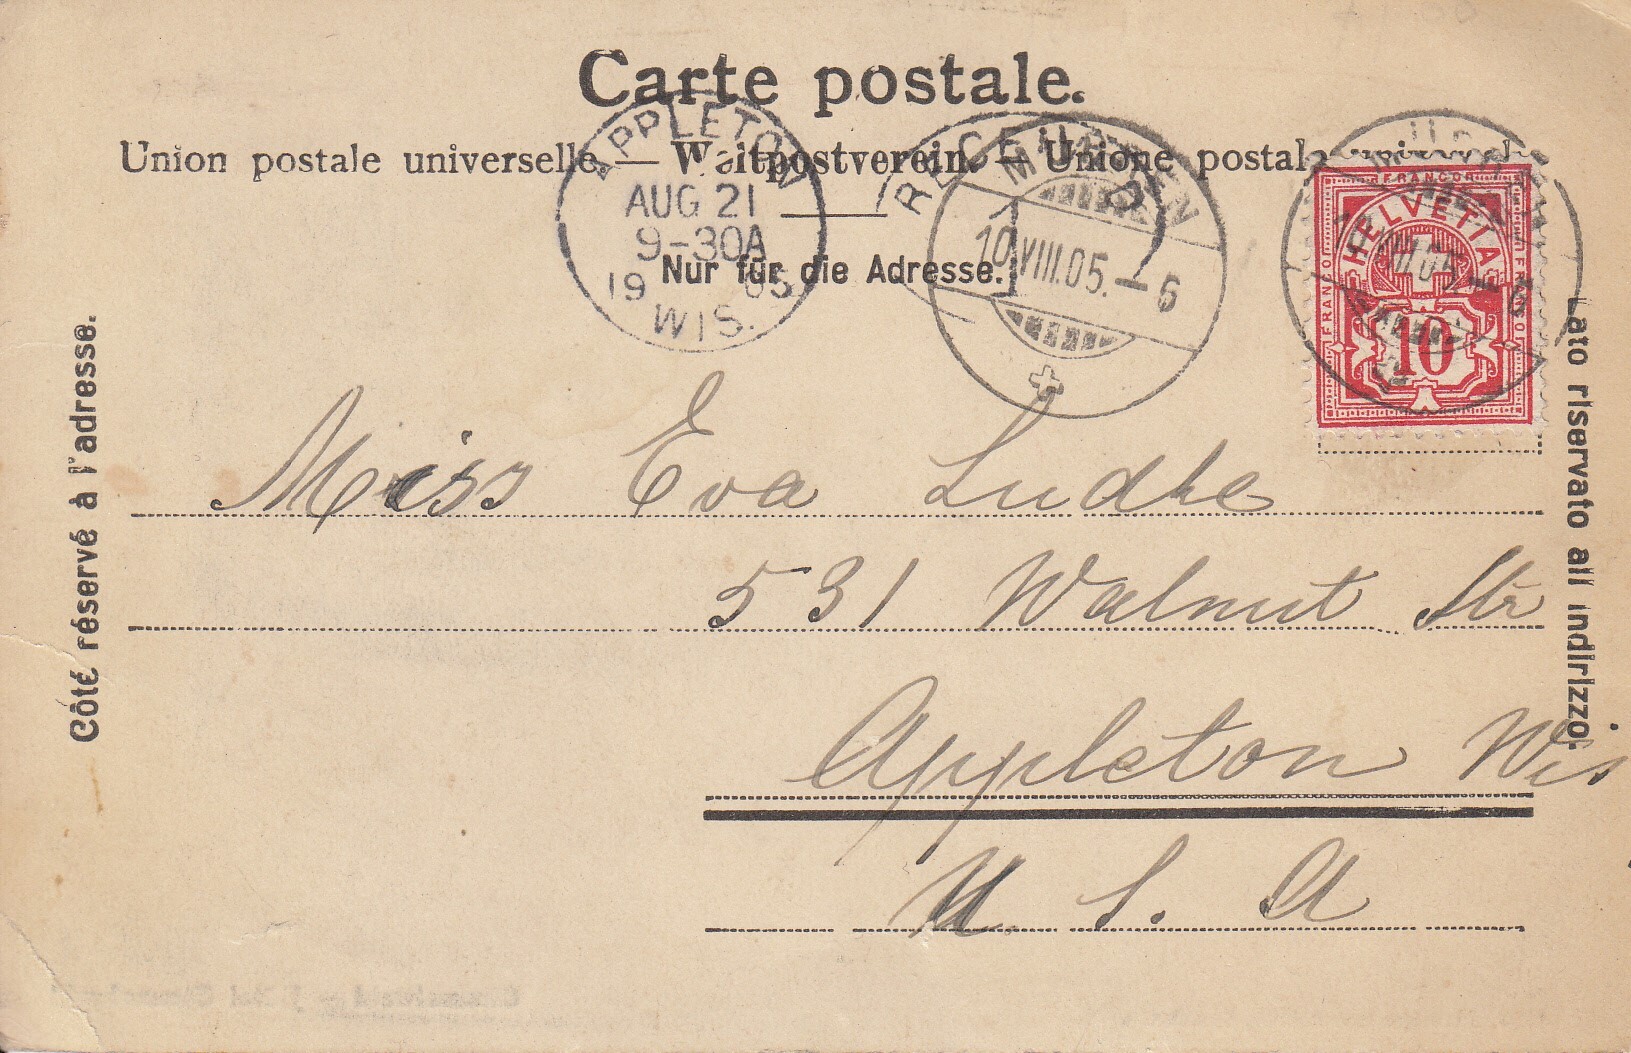 Carte postale.
Union postale universelle. — Weltpostverein. — Unione postale universale
Nur für die Adresse.
Côté réservé à l'adresse.
Lato riservato all indirizzo.
APPLETON
AUG 21
9-30A
1905
WIS.
RECEIVED
MÜRREN
10.VIII.05.-6
FRANCO
HELVETIA
FRANCO
FRANCO
10
VIII.05.-6
Miss Eva Ludke
531 Walnut Str
Appleton Wis
U. S. A